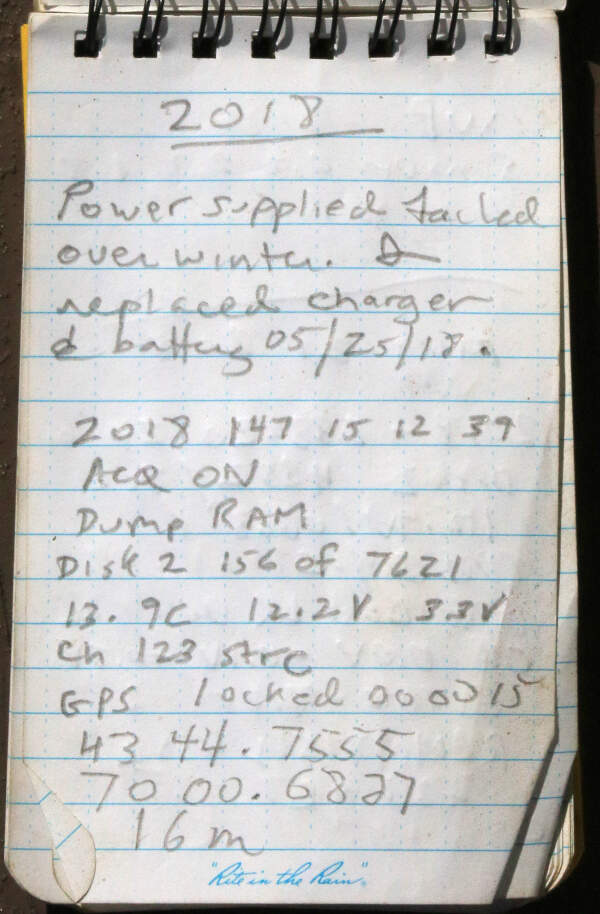 2018
Power supplied tacked
over winter. &
replaced charger
& battery 05/25/18.
2018 147 15 12 39
ACQ ON
Dump RAM
Disk 2 156 of 7621
13.9C 12.2V 3.3V
Ch 123 strc
GPS locked 00 00 15
43 44.7555
70 00.6827
16m
"Rite in the Rain"